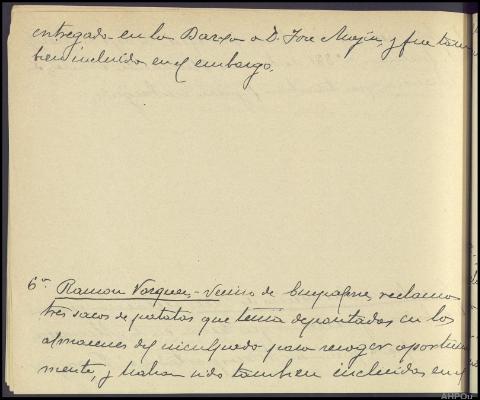 entregado en la Barxa a D. Jose Mejia, y fue tam
bien incluido en el embargo.
6º Ramon Vazquez,- Vecino de reclama
tres sacos de patatas que tenia depositados en los
almacenes del inculpado para recoger oportuna
mente, y habian sido tambien incluidos en
AHPOu